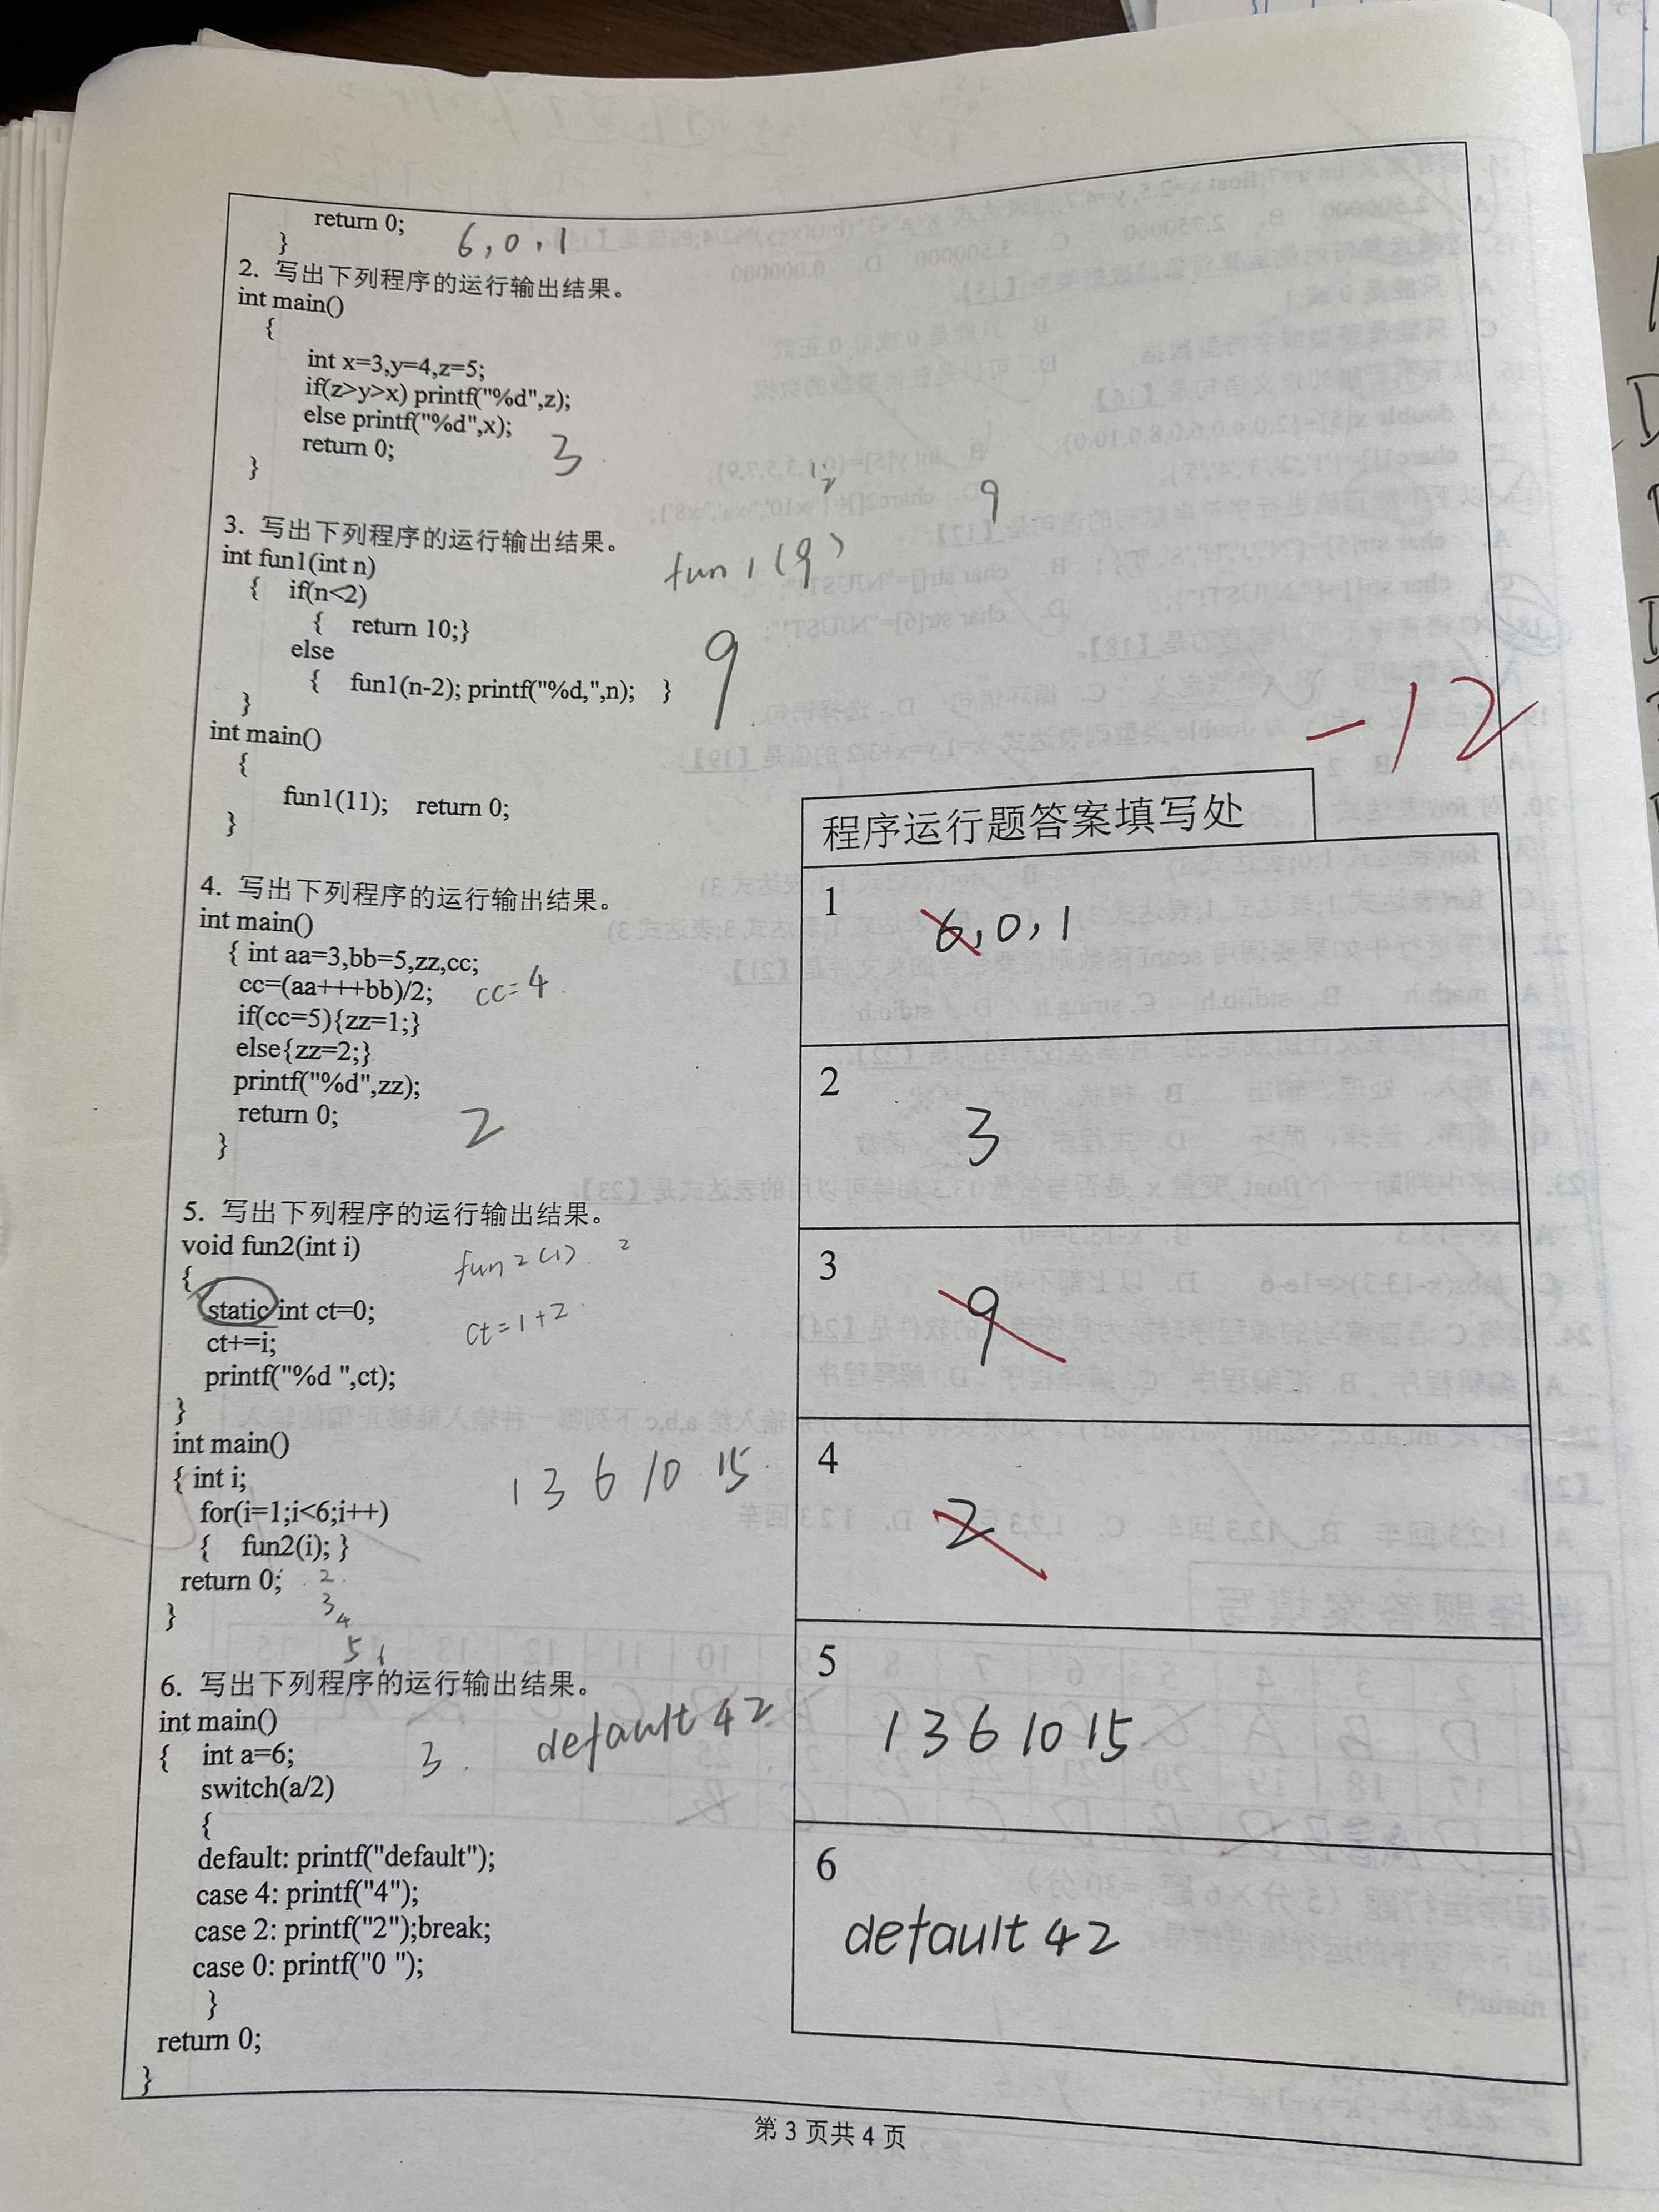 return 0;
} 6,0,1
2. 写出下列程序的运行输出结果。
int main()
{
int x=3,y=4,z=5;
if(z>y>x) printf("%d",z);
else printf("%d",x);
return 0; 3
}
9
3. 写出下列程序的运行输出结果。
int fun1(int n) fun1(9)
{ if(n<2)
{ return 10;}
else
{ fun1(n-2); printf("%d,",n); } 9
}
int main()
{
fun1(11); return 0;
}
-12
4. 写出下列程序的运行输出结果。
int main()
{ int aa=3,bb=5,zz,cc;
cc=(aa+++bb)/2; cc=4
if(cc=5){zz=1;}
else{zz=2;}
printf("%d",zz);
return 0; 2
}
5. 写出下列程序的运行输出结果。
void fun2(int i) fun2(1) 2
{
static int ct=0; ct=1+2
ct+=i;
printf("%d ",ct);
}
int main()
{ int i; 1 3 6 10 15
for(i=1;i<6;i++)
{ fun2(i); }
return 0; 2
} 3
4
5
6. 写出下列程序的运行输出结果。
int main() default 42
{ int a=6; 3
switch(a/2)
{
default: printf("default");
case 4: printf("4");
case 2: printf("2");break;
case 0: printf("0 ");
}
return 0;
}
程序运行题答案填写处
1 6,0,1
2 3
3 9
4 2
5 1 3 6 10 15
6 default 42
第 3 页共 4 页